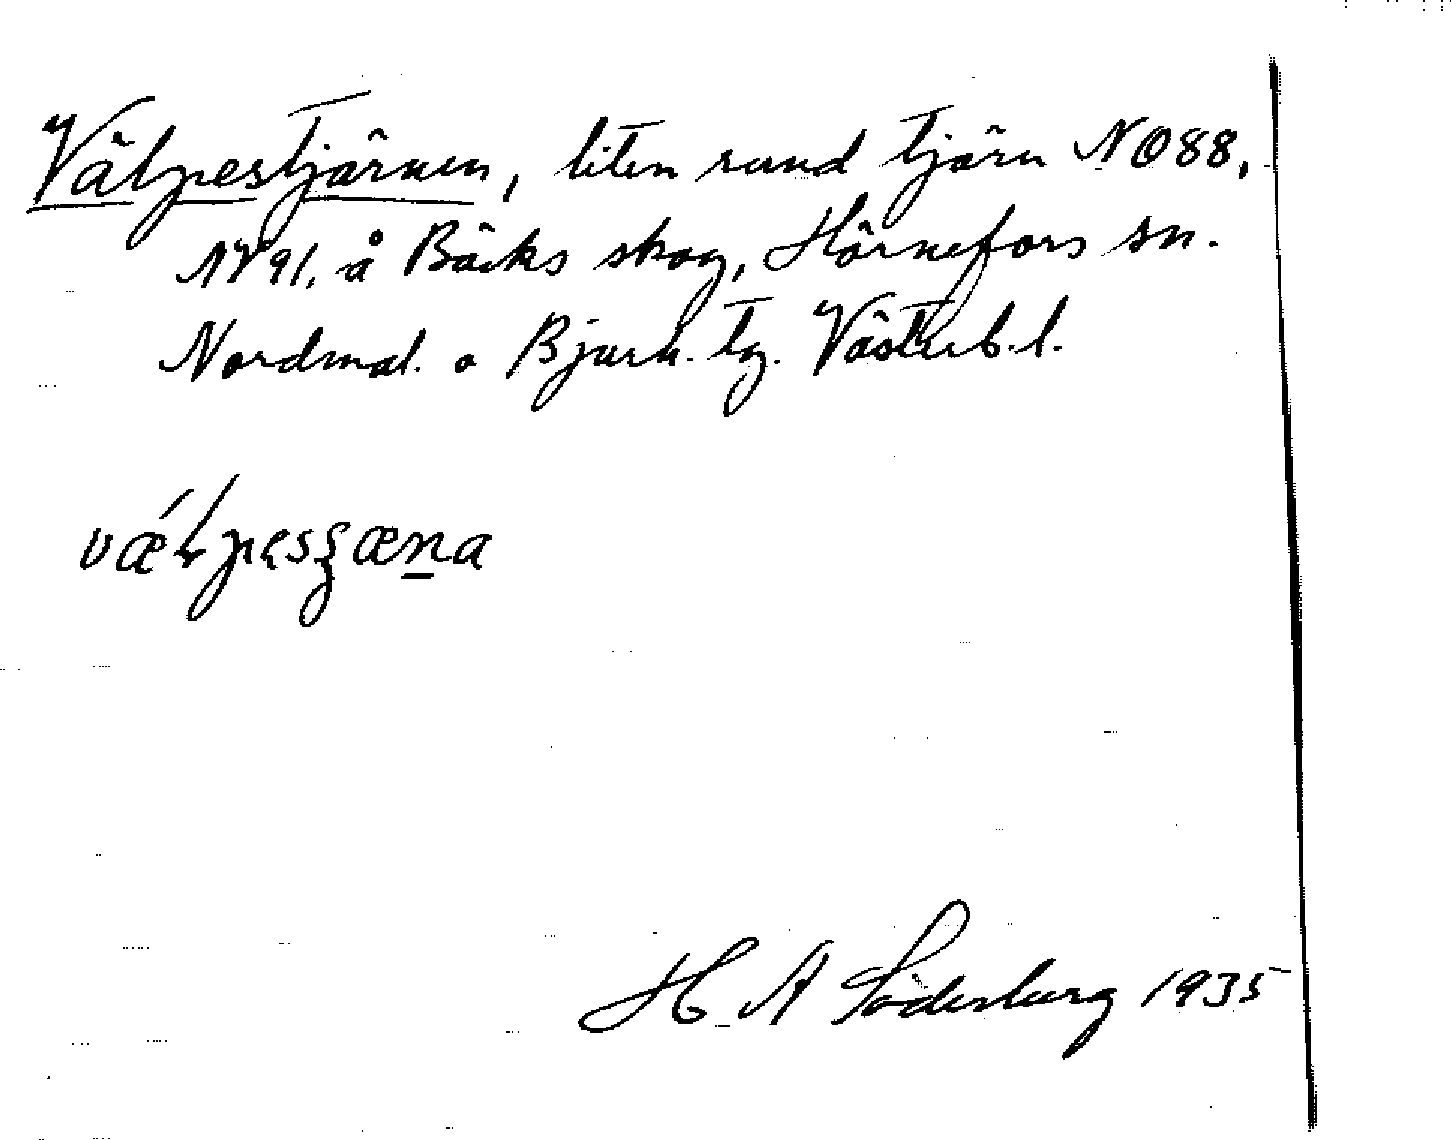 Välpestjärnen, liten rund tjärn NO88,
NV91, å Bäcks skog, Hörnefors sn.
Nordmal. o Bjurh. tg. Västerb. l.
vǽƚpesʒæna
H. A Söderberg 1935